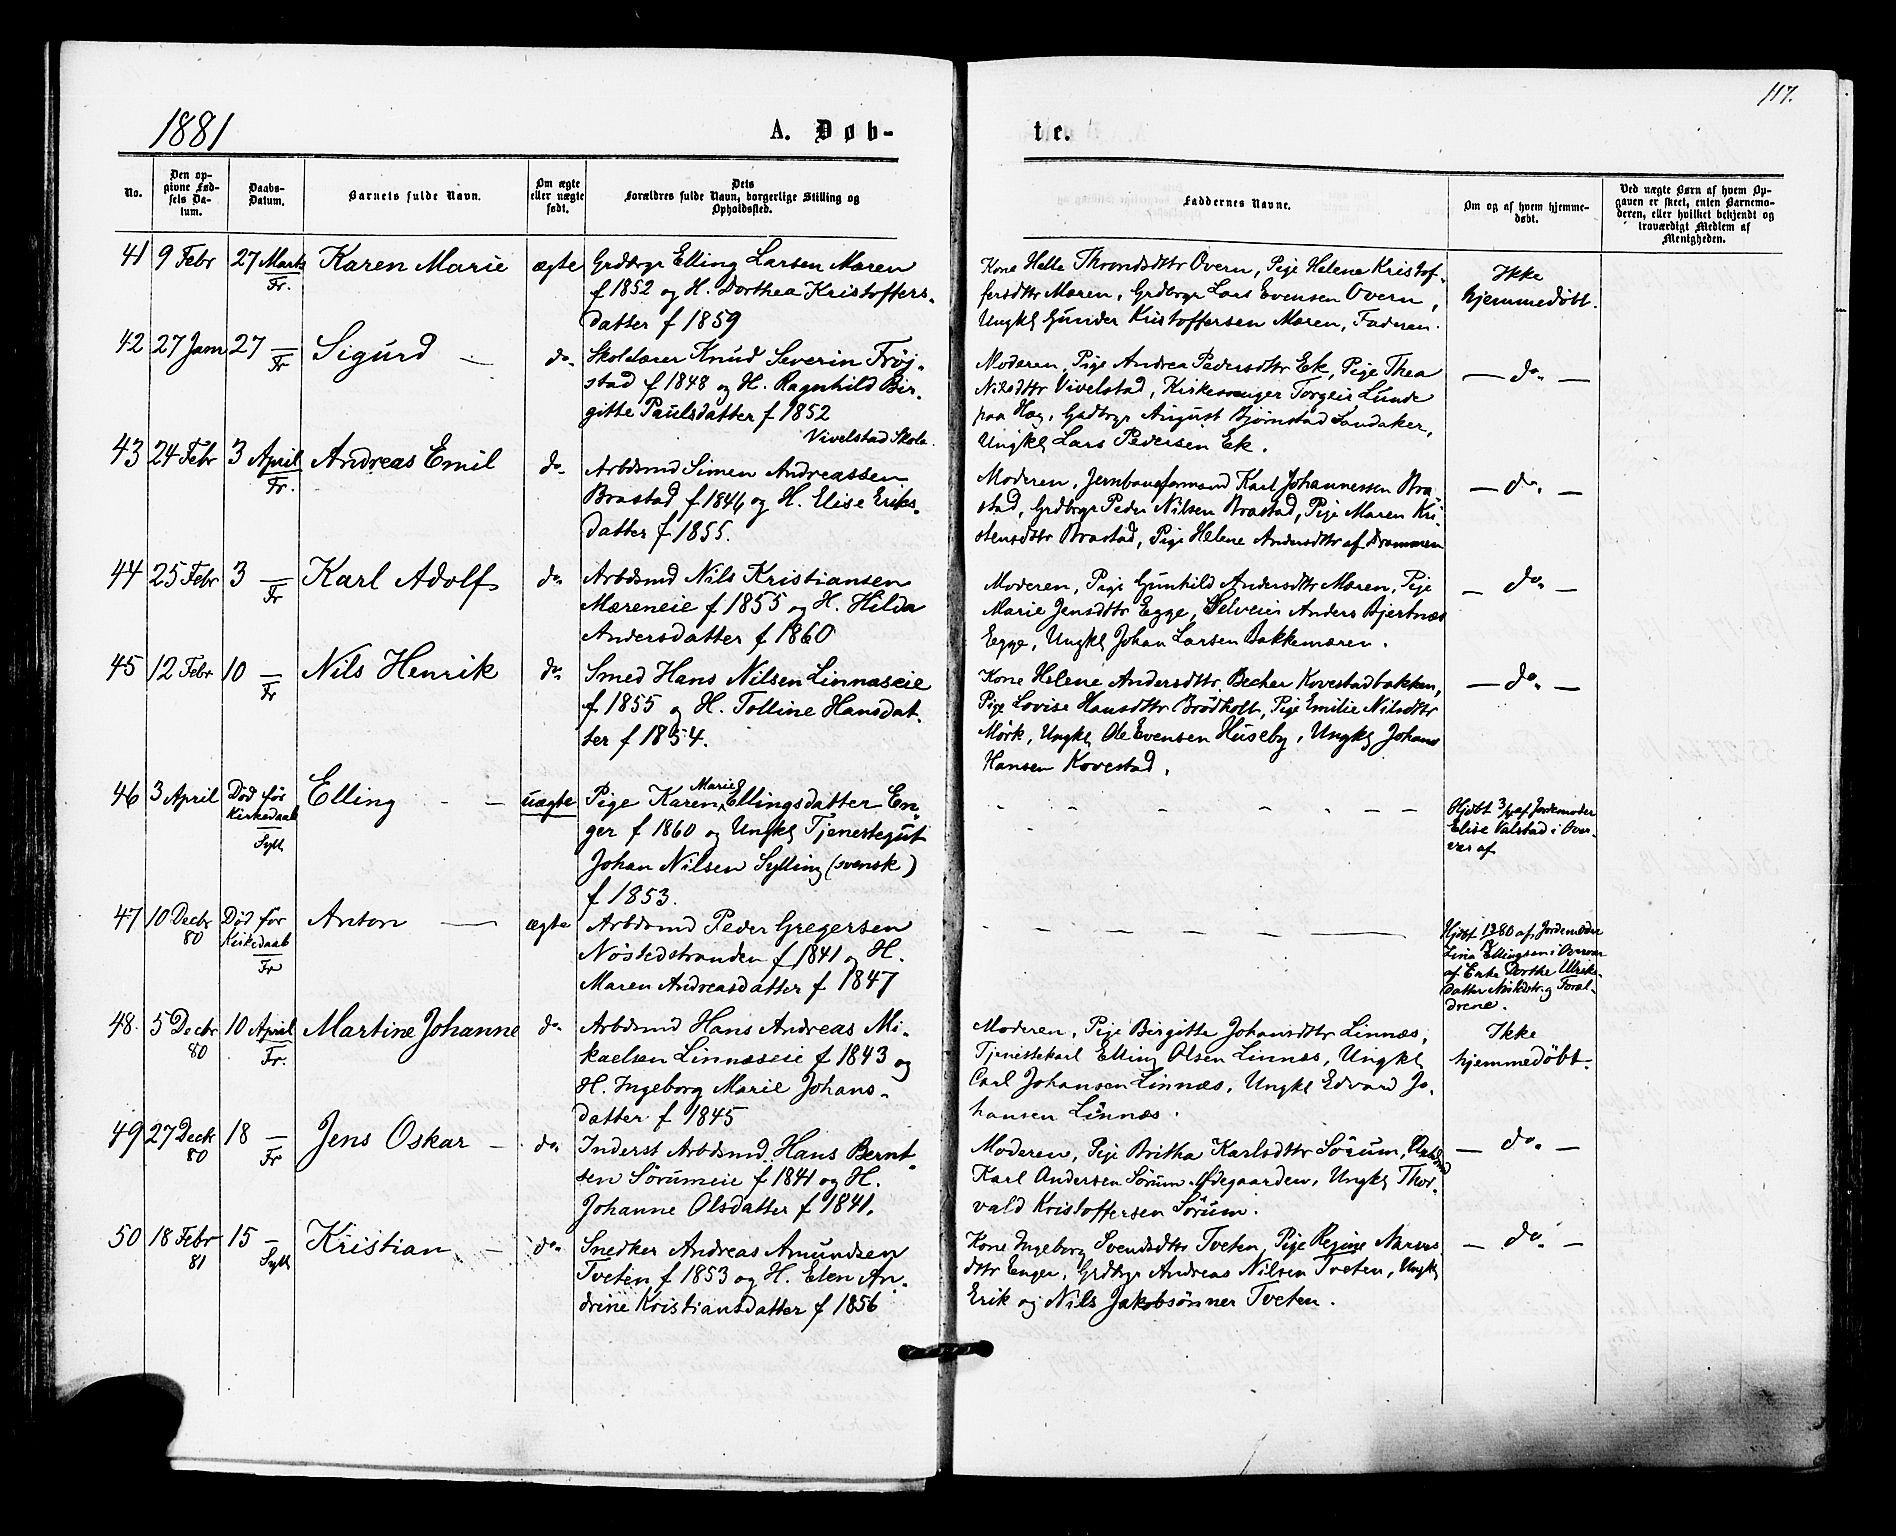 117.
1881
A. Døb-
te.
No.
Den op-
givne Fød-
sels Da-
tum.
Daabs-
Datum.
Barnets fulde Navn.
Om ægte
eller uægte
født.
Dets
Forældres fulde Navn, borgerlige Stilling og
Opholdssted.
Faddernes Navne.
Om og af hvem hjemme-
døbt.
Ved uægte Børn af hvem Op-
gaven er skeet, enten Barnemo-
deren, eller hvilket bekjendt og
troværdigt Medlem af
Menigheden.
41 9 Febr 27 Marts Karen Marie ægte
Fr.
Grdbrgr Elling Larsen Mæren
f 1852 og H. Dorthea Kristoffers-
datter f 1859
Kone Helle Throndsdttr Overn, Pige Helene Kristof-
fersdttr Mæren, Grdbrgr Lars Evensen Overn,
Ungkl Gunder Kristoffersen Mæren, Faderen.
Ikke
hjemmedøbt.
42 27 Janr 27 — Sigurd — do.
Fr
Skolelærer Knud Severin Frøj-
stad f 1848 og H. Ragnhild Bir-
gitte Paulsdatter f 1852
Vivelstad Skole.
Moderen, Pige Andrea Pedersdttr Ek, Pige Thea
Nilsdttr Vivelstad, Kirkesanger Torgeir Lunde
paa Hæg, Gadbrgr August Bjørnstad Landaker,
Ungkl Lars Pedersen Ek.
— do. —
43 24 Febr 3 April Andreas Emil do.
Fr.
Arbdsmd Simen Andreassen
Brastad f 1846 og H. Elise Eriks-
datter f 1855.
Moderen, Jernbaneformand Karl Johannessen Bra-
stad, Grdbrgr Peder Nilsen Brastad, Pige Maren Kri-
stensdttr Brastad, Pige Helene Andersdttr af Drammen
— do. —
44 25 Febr 3 — Karl Adolf do.
Fr
Arbdsmd Nils Kristiansen
Mæreneie f 1855 og H. Hilda
Andersdatter f 1860
Moderen, Pige Gunhild Andersdttr Mæren, Pige
Marie Jensdttr Egge, Selveier Anders Bjertnæs
Egge, Ungkl Johan Larsen Bakkemæren.
— do. —
45 12 Febr 10 — Nils Henrik do.
Fr
Smed Hans Nilsen Linnæseie
f 1855 og H. Tolline Hansdat-
ter f 1854.
Kone Helene Andersdttr Becher Kovestadbakken,
Pige Lovise Hansdttr Brødholt, Pige Emilie Nilsdttr
Mörk, Ungkl Ole Evensen Huseby, Ungkl Johans
Hansen Kovestad.
— do. —
46 3 April Død før Elling — uægte
Kirkedaab
Syll
Pige Karen Marie Ellingsdatter En-
ger f 1860 og Ungkl Tjenestegut
Johan Nilsen Sylling (svensk)
f 1853.
Hjdbt 3/4 af Jordemoder
Elise Valstad i Over-
vær af
47 10 Decbr Død før Anton — ægte
80 Kirkedaab
Fr
Arbdsmd Peder Gregersen
Nøstedstranden f 1841 og H.
Maren Andreasdatter f 1847
Hjdbt 80 af Jordemoder
Lina Ellingsen i Overvær
af Enke Dorthe Ulriks-
datter og Foræl-
drene.
48. 5 Decbr 10 April Martine Johanne do.
80 Fr.
Arbdsmd Hans Andreas Mi-
kaelsen Linnæseie f 1843 og
H. Ingeborg Marie Johans-
datter f 1845
Moderen, Pige Birgitte Johansdttr Linnæs,
Tjenestekarl Elling Olsen Linnæs, Ungkl
Carl Johansen Linnæs, Ungkl Edvard Jo-
hansen Linnæs.
Ikke
hjemmedøbt.
49 27 Decbr 18 — Jens Oskar — do.
80 Fr
Inderst Arbdsmd. Hans Bernt-
sen Sörumeie f 1841 og H.
Johanne Olsdatter f 1841.
Moderen, Pige Britha Karlsdttr Sörum,
Karl Andersen Sörum Ødegaarden, Ungkl Thor-
vald Kristoffersen Sörum.
— do. —
50 18 Febr 15 — Kristian — do.
81 Syll
Snedker Andreas Amundsen
Tveten f 1853 og H. Elen An-
drine Kristiansdatter f 1856
Kone Ingeborg Svendsdttr Tveten, Pige Regine Narves-
dttr Enger, Grdbrgr Andreas Nilsen Tveten, Ungkl
Erik og Nils Jakobsönner Tveten.
— do. —